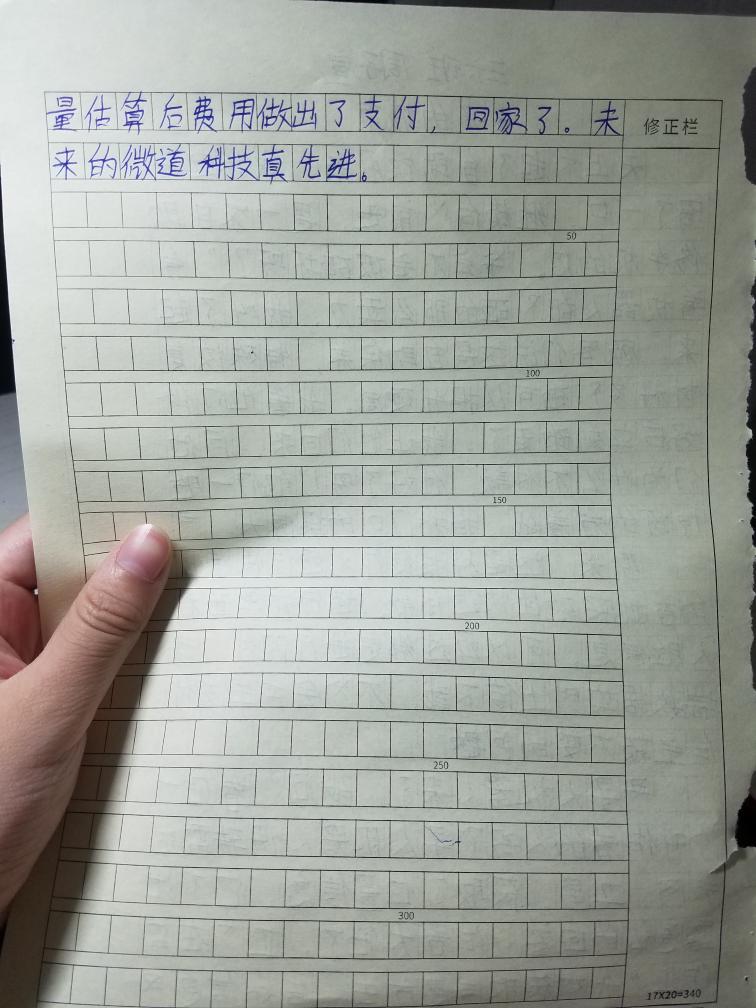 量估算后费用做出了支付，回家了。未
修正栏
来的微道科技真先进。
50
100
150
200
250
300
17X20=340